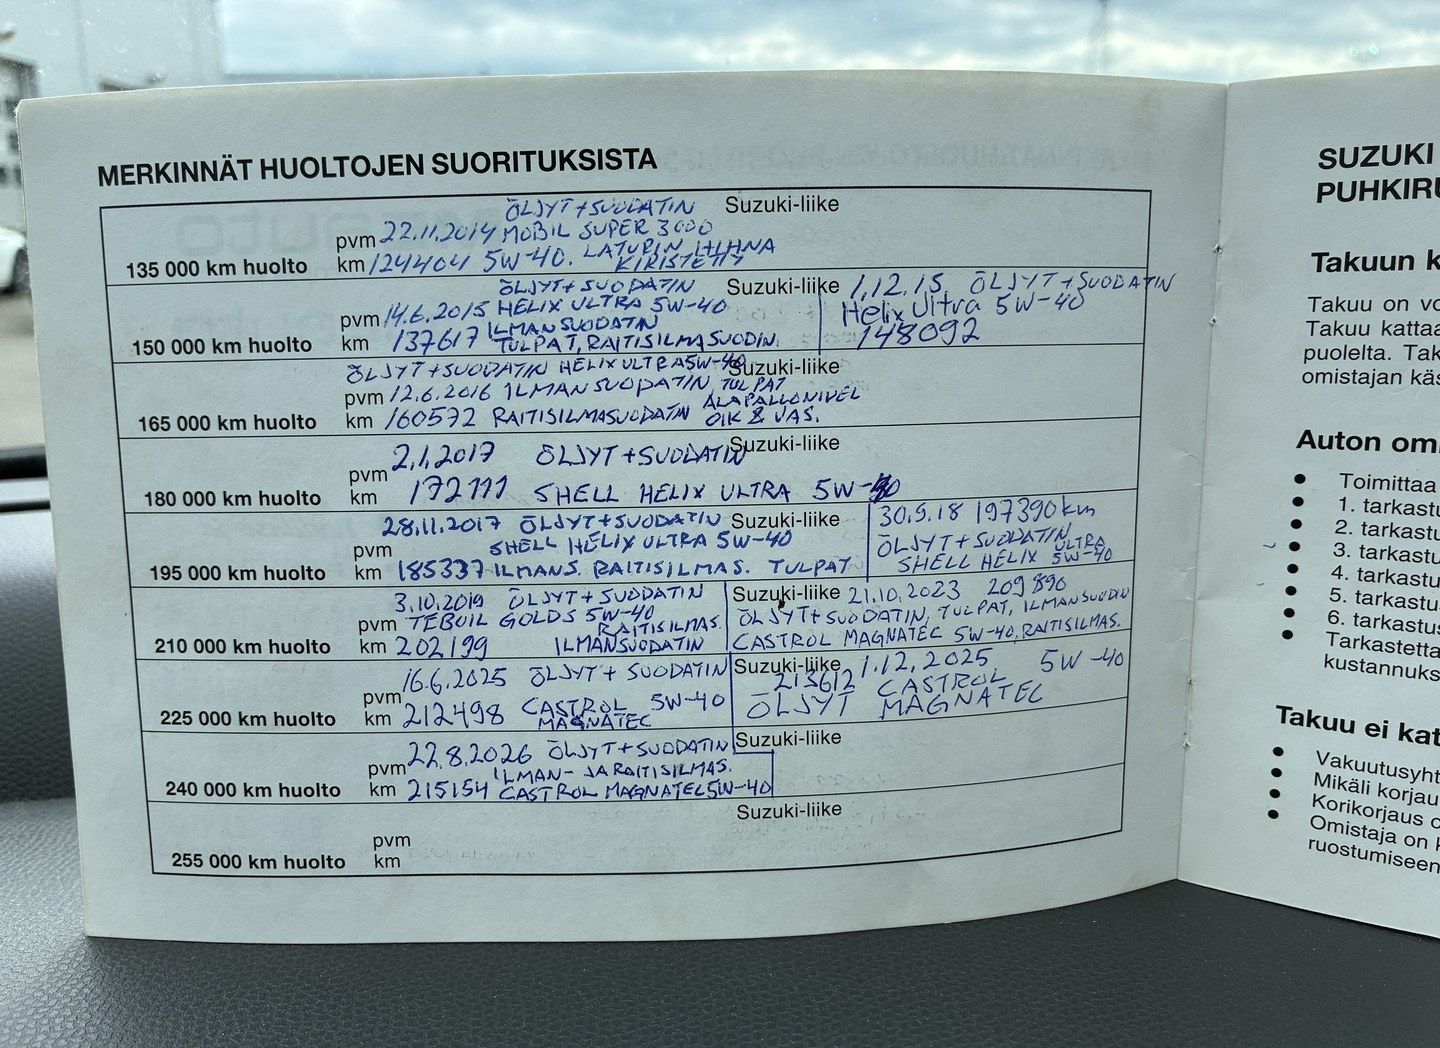 MERKINNÄT HUOLTOJEN SUORITUKSISTA
135 000 km huolto
ÖLJYT+SUODATIN Suzuki-liike
pvm 22.11.2014 MOBIL SUPER 3000
km 124404 5W-40. LATURIN HIHNA
KIRISTETTY
150 000 km huolto
ÖLJYT+SUODATIN Suzuki-liike
pvm 14.6.2015 HELIX ULTRA 5W-40
ILMANSUODATIN
km 137617 TULPAT, RAITISILMASUODIN.
1.12.15 ÖLJYT+SUODATIN
Helix Ultra 5W-40
148092
165 000 km huolto
ÖLJYT+SUODATIN HELIX ULTRA 5W-40 Suzuki-liike
pvm 12.6.2016 ILMANSUODATIN TULPAT
ALAPALLONIVEL
km 160572 RAITISILMASUODATIN OIK & VAS.
180 000 km huolto
2.1.2017 ÖLJYT+SUODATIN Suzuki-liike
pvm
km 172111 SHELL HELIX ULTRA 5W-40
195 000 km huolto
28.11.2017 ÖLJYT+SUODATIN Suzuki-liike
pvm SHELL HELIX ULTRA 5W-40
km 185337 ILMANS. RAITISILMAS. TULPAT
30.5.18 197390km
ÖLJYT+SUODATIN
SHELL HELIX ULTRA 5W-40
210 000 km huolto
3.10.2019 ÖLJYT+SUODATIN
pvm TEBOIL GOLDS 5W-40
RAITISILMAS.
km 202199 ILMANSUODATIN
Suzuki-liike 21.10.2023 209890
ÖLJYT+SUODATIN, TULPAT, ILMANSUODIN
CASTROL MAGNATEC 5W-40, RAITISILMAS.
225 000 km huolto
16.6.2025 ÖLJYT+SUODATIN
pvm
km 212498 CASTROL 5W-40
MAGNATEC
Suzuki-liike 1.12.2025 5W-40
213612 CASTROL
ÖLJYT MAGNATEC
240 000 km huolto
22.8.2026 ÖLJYT+SUODATIN Suzuki-liike
pvm ILMAN- JA RAITISILMAS.
km 215154 CASTROL MAGNATEC 5W-40
255 000 km huolto
Suzuki-liike
pvm
km
SUZUKI
Takuun
Takuu on
Takuu
puolelta.
omistajan
Auton
Toimittaa
1.
2.
3.
4.
5.
6.
Takuu ei
Mikäli
Korikorjaus
Omistaja on